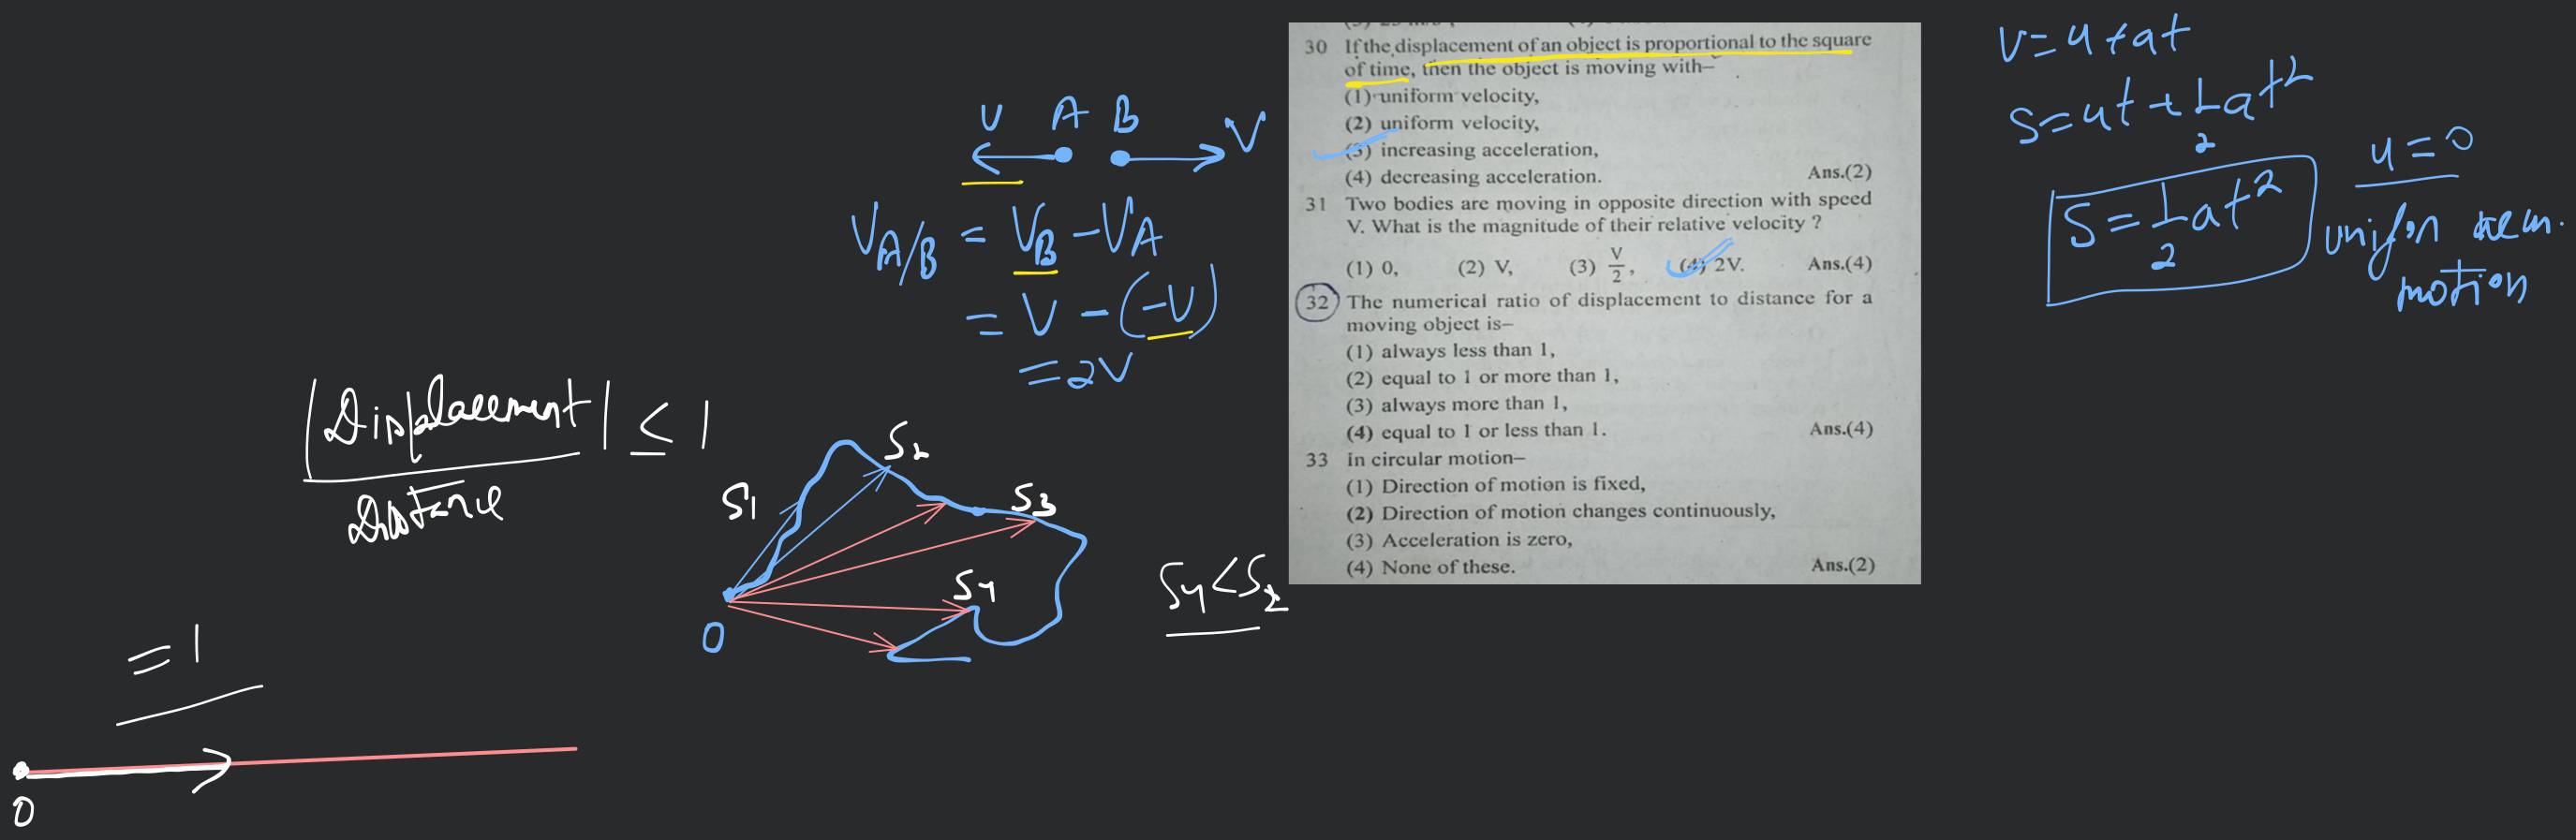 30 If the displacement of an object is proportional to the square
of time, then the object is moving with–
(1) uniform velocity,
(2) uniform velocity,
(3) increasing acceleration,
(4) decreasing acceleration. Ans.(2)
31 Two bodies are moving in opposite direction with speed
V. What is the magnitude of their relative velocity ?
(1) 0, (2) V, (3) V/2, (4) 2V. Ans.(4)
32 The numerical ratio of displacement to distance for a
moving object is–
(1) always less than 1,
(2) equal to 1 or more than 1,
(3) always more than 1,
(4) equal to 1 or less than 1. Ans.(4)
33 In circular motion–
(1) Direction of motion is fixed,
(2) Direction of motion changes continuously,
(3) Acceleration is zero,
(4) None of these. Ans.(2)
V=u+at
S=ut+1/2at²
u=0
S=1/2at²
motion
U A B V
VA/B = VB-VA
= V-(-V)
=2V
|Displacement| ≤ 1
Distance
S1
S2
S3
S4
O
S4<S2
=1
O